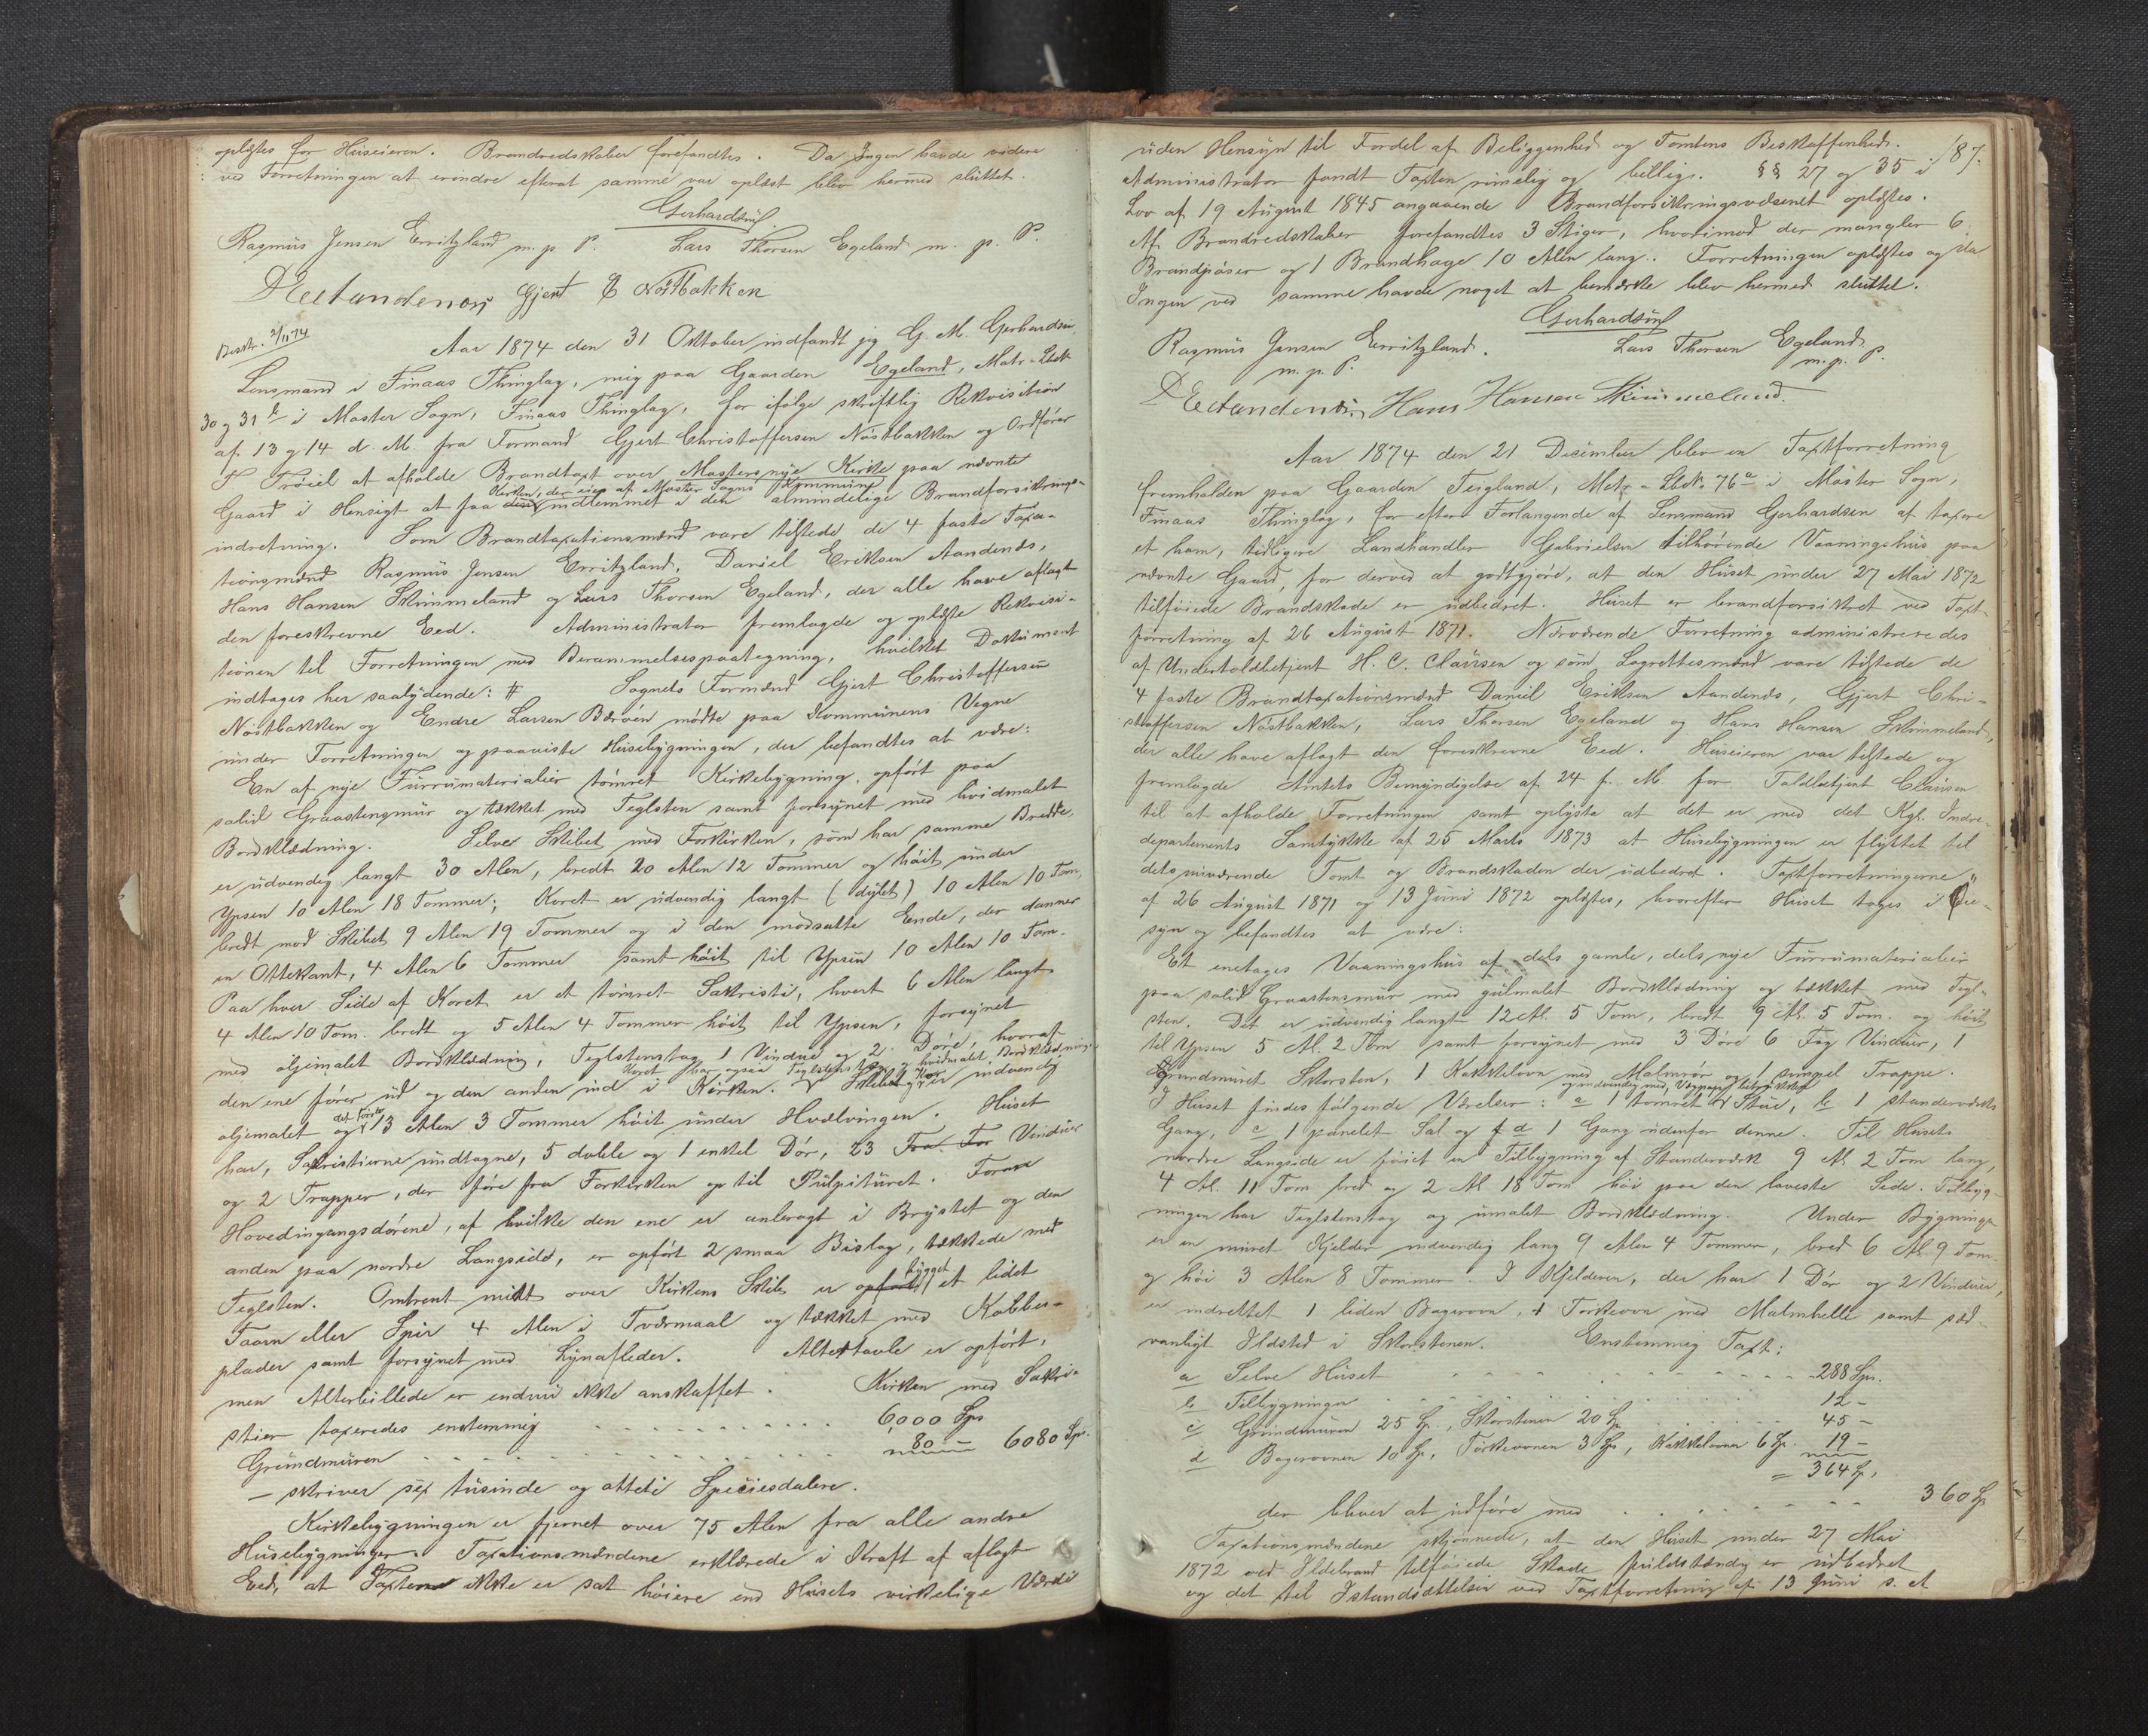 oplæstes for Huseieren. Brandredskaber forefandtes. Da Ingen havde videre
ved Forretningen at erindre efterat samme var oplæst blev hermed sluttet.
Gerhardsen
Rasmus Jensen Erritzland m. p. P. Lars Thorsen Egeland m. p. P.
DEeitandenæs Gjert C Nøstbakken
Beskr. 2/11 74
Aar 1874 den 31 Oktober indfandt jeg G. M. Gerhardsen,
Lensmand i Finaas Thinglag, mig paa Gaarden Egeland, Matr-Løbe№
30 og 31 b i Moster Sogn, Finaas Thinglag, for ifølge skriftlig Rekvisition
af 13 og 14 d. M. fra Formand Gjert Christoffersen Nøstbakken og Ordfører
F Trøiel at afholde Brandtaxt over Mosters nye Kirke paa nævnte
Kirken, der eies af Moster Sogns Kommune
Gaard i Hensigt at faa den indlemmet i den almindelige Brandforsikrings-
indretning. Som Brandtaxationsmænd vare tilstede de 4 faste Taxa-
tionsmænd Rasmus Jensen Erritzland, Daniel Eriksen Aandenæs,
Hans Hansen Skimmeland og Lars Thorsen Egeland, der alle have aflagt
den foreskrevne Eed. Administrator fremlagde og oplæste Rekvisi-
tionen til Forretningen med Berammelsespaategning, hvilket Dokument
indtages her saalydende: # Sognets Formænd Gjert Christoffersen
Nøstbakken og Endre Larsen Bærøen mødte paa Kommunens Vegne
under Forretningen og paaviste Husebygningen, der befandtes at være:
En af nye Furrumaterialier tømret Kirkebygning, opført paa
solid Graastensmur og tækket med Teglsten samt forsynet med hvidmalet
Bordklædning. Selve Skibet med Forkirken, som har samme Bredde,
er udvendig langt 30 Alen, bredt 20 Alen 12 Tommer og høit under
Ypsen 10 Alen 18 Tommer; Koret er udvendig langt (dybt) 10 Alen 10 Tom,
bredt mod Skibet 9 Alen 19 Tommer og i den modsatte Ende, der danner
en Ottekant, 4 Alen 6 Tommer samt høit til Ypsen 10 Alen 10 Tom.
Paa hver Side af Koret er et tømret Sakristi, hvert 6 Alen langt
4 Alen 10 Tom. bredt og 5 Alen 4 Tommer høit til Ypsen, forsynet
med oljemalet Bordklædning, Teglstenstag, 1 Vindue og 2 Døre, hvoraf
Koret har ogsaa Teglstenstag og hvidmalet Bordklædning
den ene fører ud og den anden ind i Kirken. Skibet og Kor er indvendig
oljemalet og det første 13 Alen 3 Tommer høit under Hvælvingen. Huset
har, Sakristierne undtagne, 5 doble og 1 enkel Dør, 23 Vinduer
og 2 Trapper, der føre fra Forkirken op til Pulpituret. Foran
Hovedingangsdørene, af hvilke den ene er anbragt i Brystet og den
anden paa nordre Langside, er opført 2 smaa Bislag, tækkede med
Teglsten. Omtrent midt over Kirkens Skib er opført bygget et lidet
Taarn eller Spir 4 Alen i Tværmaal og tækket med Kobber-
plader samt forsynet med Lynafleder. Altertavle er opført,
men Alterbillede er endnu ikke anskaffet. Kirken med Sakri-
stier taxeredes enstemmig . . . . 6000 Sps
Grundmuren . . . . 80 — 6080 Sps.
— skriver sex tusinde og otteti Speciesdalere.
Kirkebygningen er fjernet over 75 Alen fra alle andre
Husebygninger. Taxationsmændene erklærede i Kraft af aflagt
Eed, at Taxten ikke er sat høiere end Husets virkelige Værdi
87.
uden Hensyn til Fordel af Beliggenhed og Tomtens Beskaffenhed.
Administrator fandt Taxten rimelig og billig. §§ 27 og 35 i
Lov af 19 August 1845 angaaende Brandforsikringsvæsenet oplæstes.
Af Brandredskaber forefandtes 3 Stiger, hvorimod der mangler 6
Brandpøser og 1 Brandhage 10 Alen lang. Forretningen oplæstes og da
Ingen ved samme havde noget at bemærke blev hermed sluttet.
Gerhardsen
Rasmus Jensen Erritzland. Lars Thorsen Egeland
m. p. P. m. p. P.
DEeitandenæs Hans Hansen Skimmeland.
Aar 1874 den 21 December blev en Taxtforretning
fremholden paa Gaarden Teigland, Matr-Løbe№ 76 a i Moster Sogn,
Finaas Thinglag, for efter Forlangende af Lensmand Gerhardsen at taxere
et ham, tidligere Landhandler Gabrielsen tilhørende Vaaningshus paa
nævnte Gaard, for derved at godtgjøre, at den Huset under 27 Mai 1872
tilføiede Brandskade er udbedret. Huset er brandforsikret ved Taxt-
forretning af 26 August 1871. Nærværende Forretning administreredes
af Undertoldbetjent H. C. Clausen og som Lagrettesmænd vare tilstede de
4 faste Brandtaxationsmænd Daniel Eriksen Aandenæs, Gjert Chri-
stoffersen Nøstbakken, Lars Thorsen Egeland og Hans Hansen Skimmeland,
der alle have aflagt den foreskrevne Eed. Huseieren var tilstede og
fremlagde Amtets Bemyndigelse af 24 f. M. for Toldbetjent Clausen
til at afholde Forretningen samt oplyste at det er med det Kgl. Indre-
departements Samtykke af 25 Marts 1873 at Husebygningen er flyttet til
dets nuværende Tomt og Brandskaden der udbedret. Taxtforretningerne
af 26 August 1871 og 13 Juni 1872 oplæstes, hvorefter Huset toges i Øie-
syn og befandtes at være:
Et enetages Vaaningshus af dels gamle, dels nye Furrumaterialier
paa solid Graastensmur med gulmalet Bordklædning og tækket med Tegl-
sten. Det er udvendig langt 12 Al. 5 Tom, bredt 9 Al. 5 Tom. og høit
til Ypsen 5 Al. 2 Tom samt forsynet med 3 Døre 6 Fag Vinduer, 1
Grundmuret Skorsten, 1 Kakkelovn med Malmrør og 1 simpel Trappe.
og indvendig med Vægpapir betrukket
I Huset findes følgende Værelser: a 1 tømret Stue, b 1 standerværks
Gang, c 1 panelet Sal og d 1 Gang udenfor denne. Til Husets
nordre Langside er føiet en Tilbygning af Standerværk 9 Al 2 Tom lang,
4 Al. 11 Tom bred og 2 Al 18 Tom høi paa den laveste Side. Tilbyg-
ningen har Teglstenstag og umalet Bordklædning. Under Bygningen
er en muret Kjelder indvendig lang 9 Alen 4 Tommer, bred 6 Al. 9 Tom.
og høi 3 Alen 8 Tommer. I Kjelderen, der har 1 Dør og 2 Vinduer,
er indrettet 1 liden Bagerovn, 1 Tørkeovn med Malmhelle samt sæd-
vanligt Ildsted i Skorstenen. Enstemmig Taxt:
a Selve Huset . . . . 288 Sps.
b Tilbygningen . . . . 12 —
c Grundmuren 25 Sp., Skorstenen 20 Sp. . . . 45 —
d Bagerovnen 10 Sp., Tørkeovnen 3 Sp, Kakkelovnen 6 Sp. 19 —
= 364 Sp,
der bliver at udføre med . . . . 360 Sp
Taxationsmændene skjønnede, at den Huset under 27 Mai
1872 ved Ildebrand tilføiede Skade fuldstændig er udbedret
og det til Istandsættelsen ved Taxtforretning af 13 Juni s. A